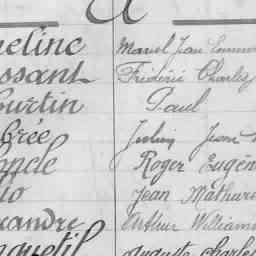 meline Marcel Jean
ssant Frédéric Charles
ourtin Paul
brée Julien
Roger Eugène
io Jean Mathurin
exandre Arthur William
nquetil Auguste Charles